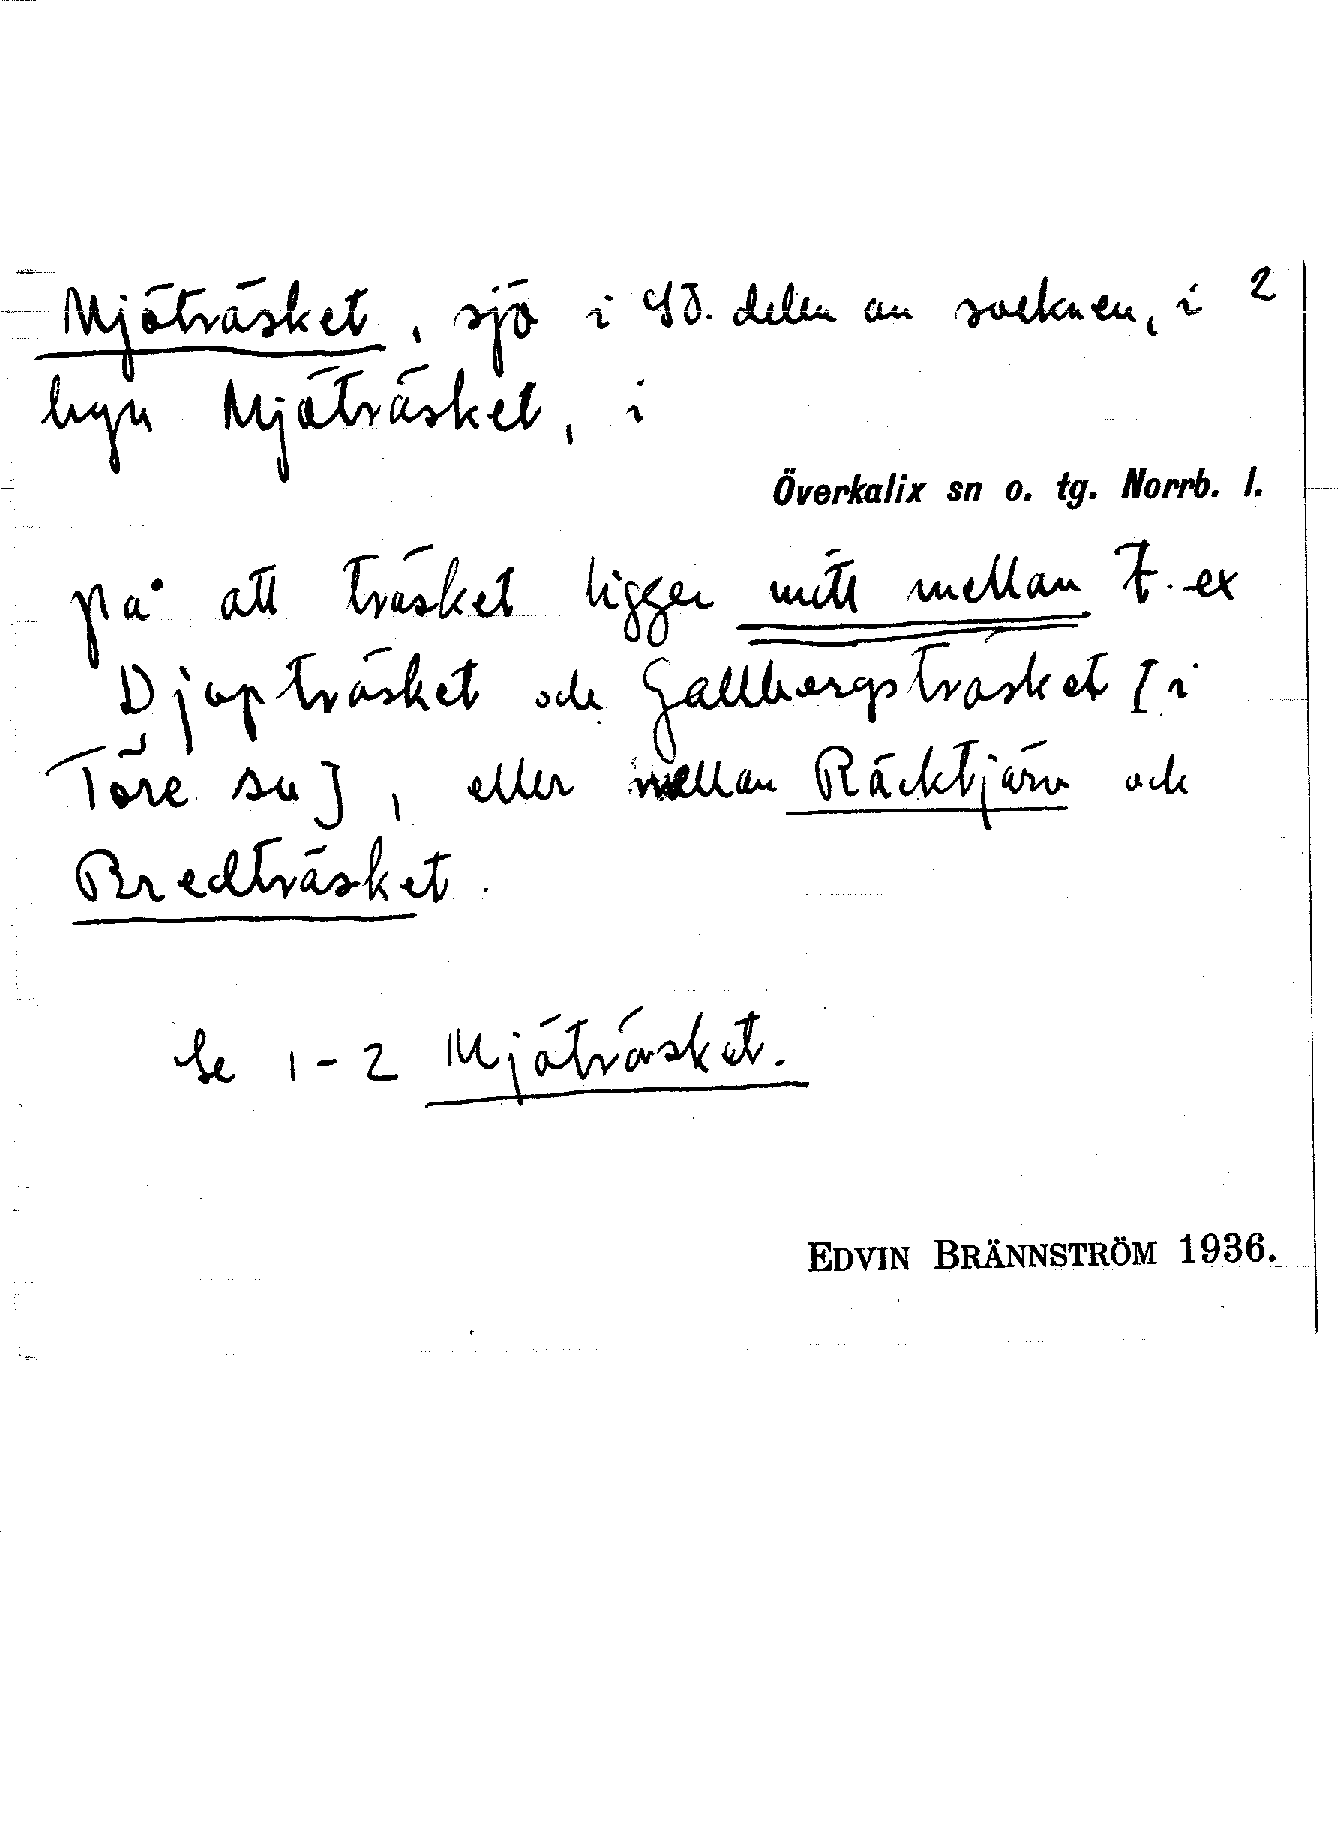 Mjöträsket, sjö i SÖ. delen av socknen, i 2
byn Mjöträsket, i
Överkalix sn o. tg. Norrb. l.
på att träsket ligger mitt mellan t. ex
Djupträsket och Gallbergsträsket [i
Töre sn], eller mellan Räcktjärv och
Bredträsket.
Se 1-2 Mjöträsket.
EDVIN BRÄNNSTRÖM 1936.